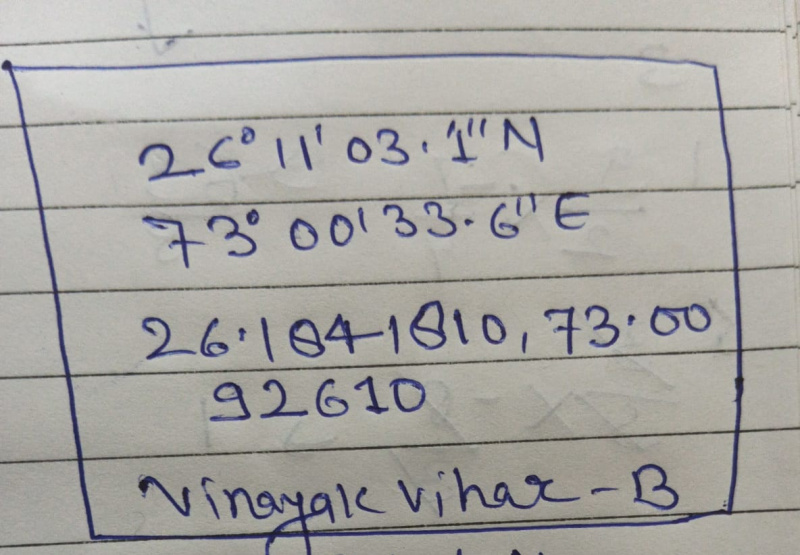 26° 11' 03.1" N
73° 00' 33.6" E
26.1841810, 73.00
92610
Vinayak Vihar - B